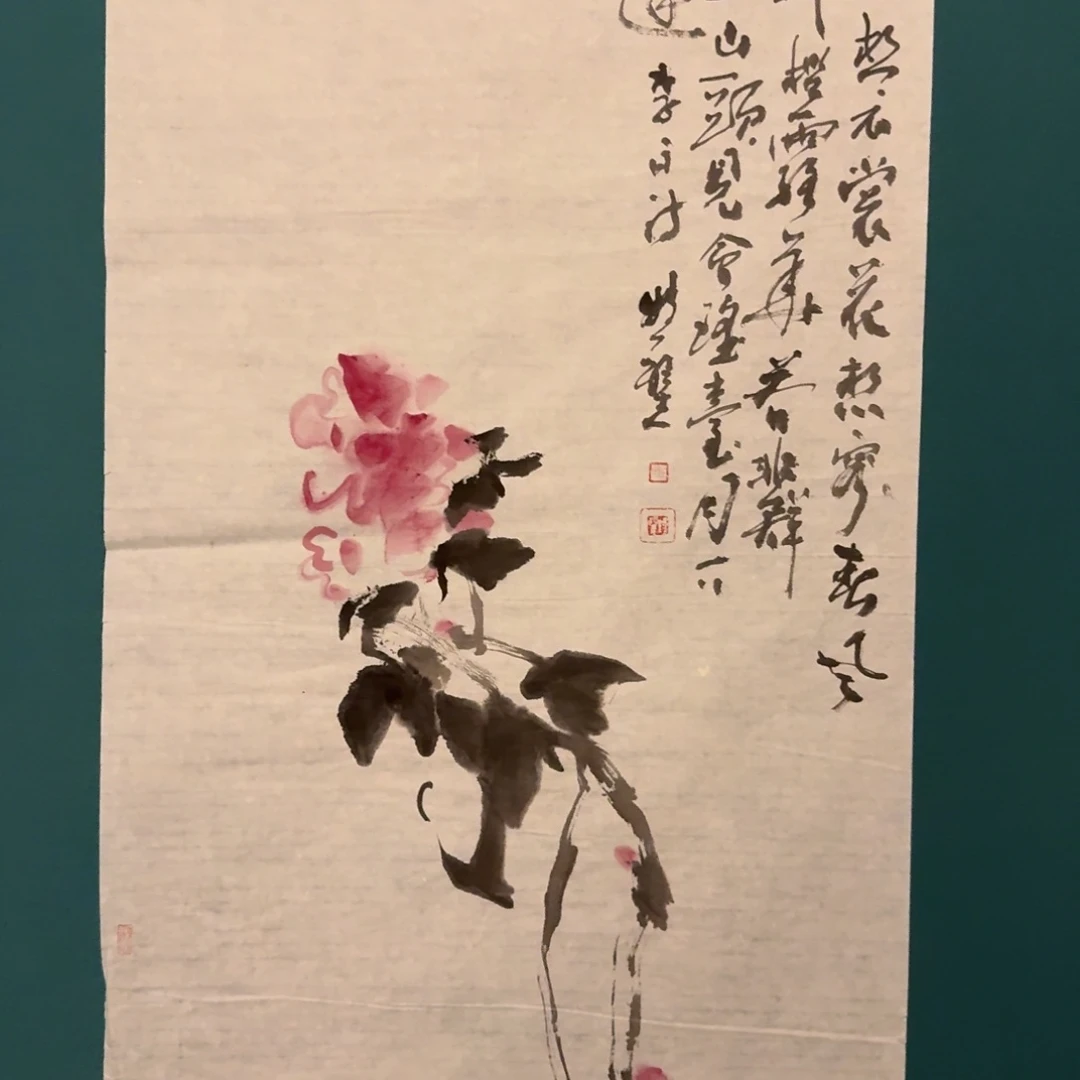 想衣裳花想容春風
檻露華若非群
山頭見會瑤臺月下
李白詩